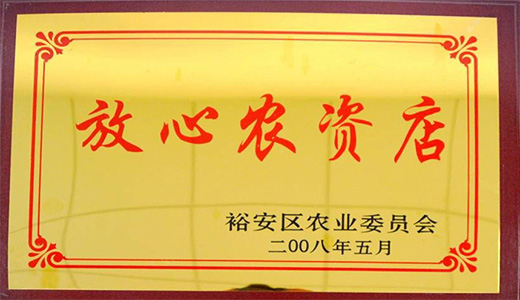 放心农资店
裕安区农业委员会
二00八年五月